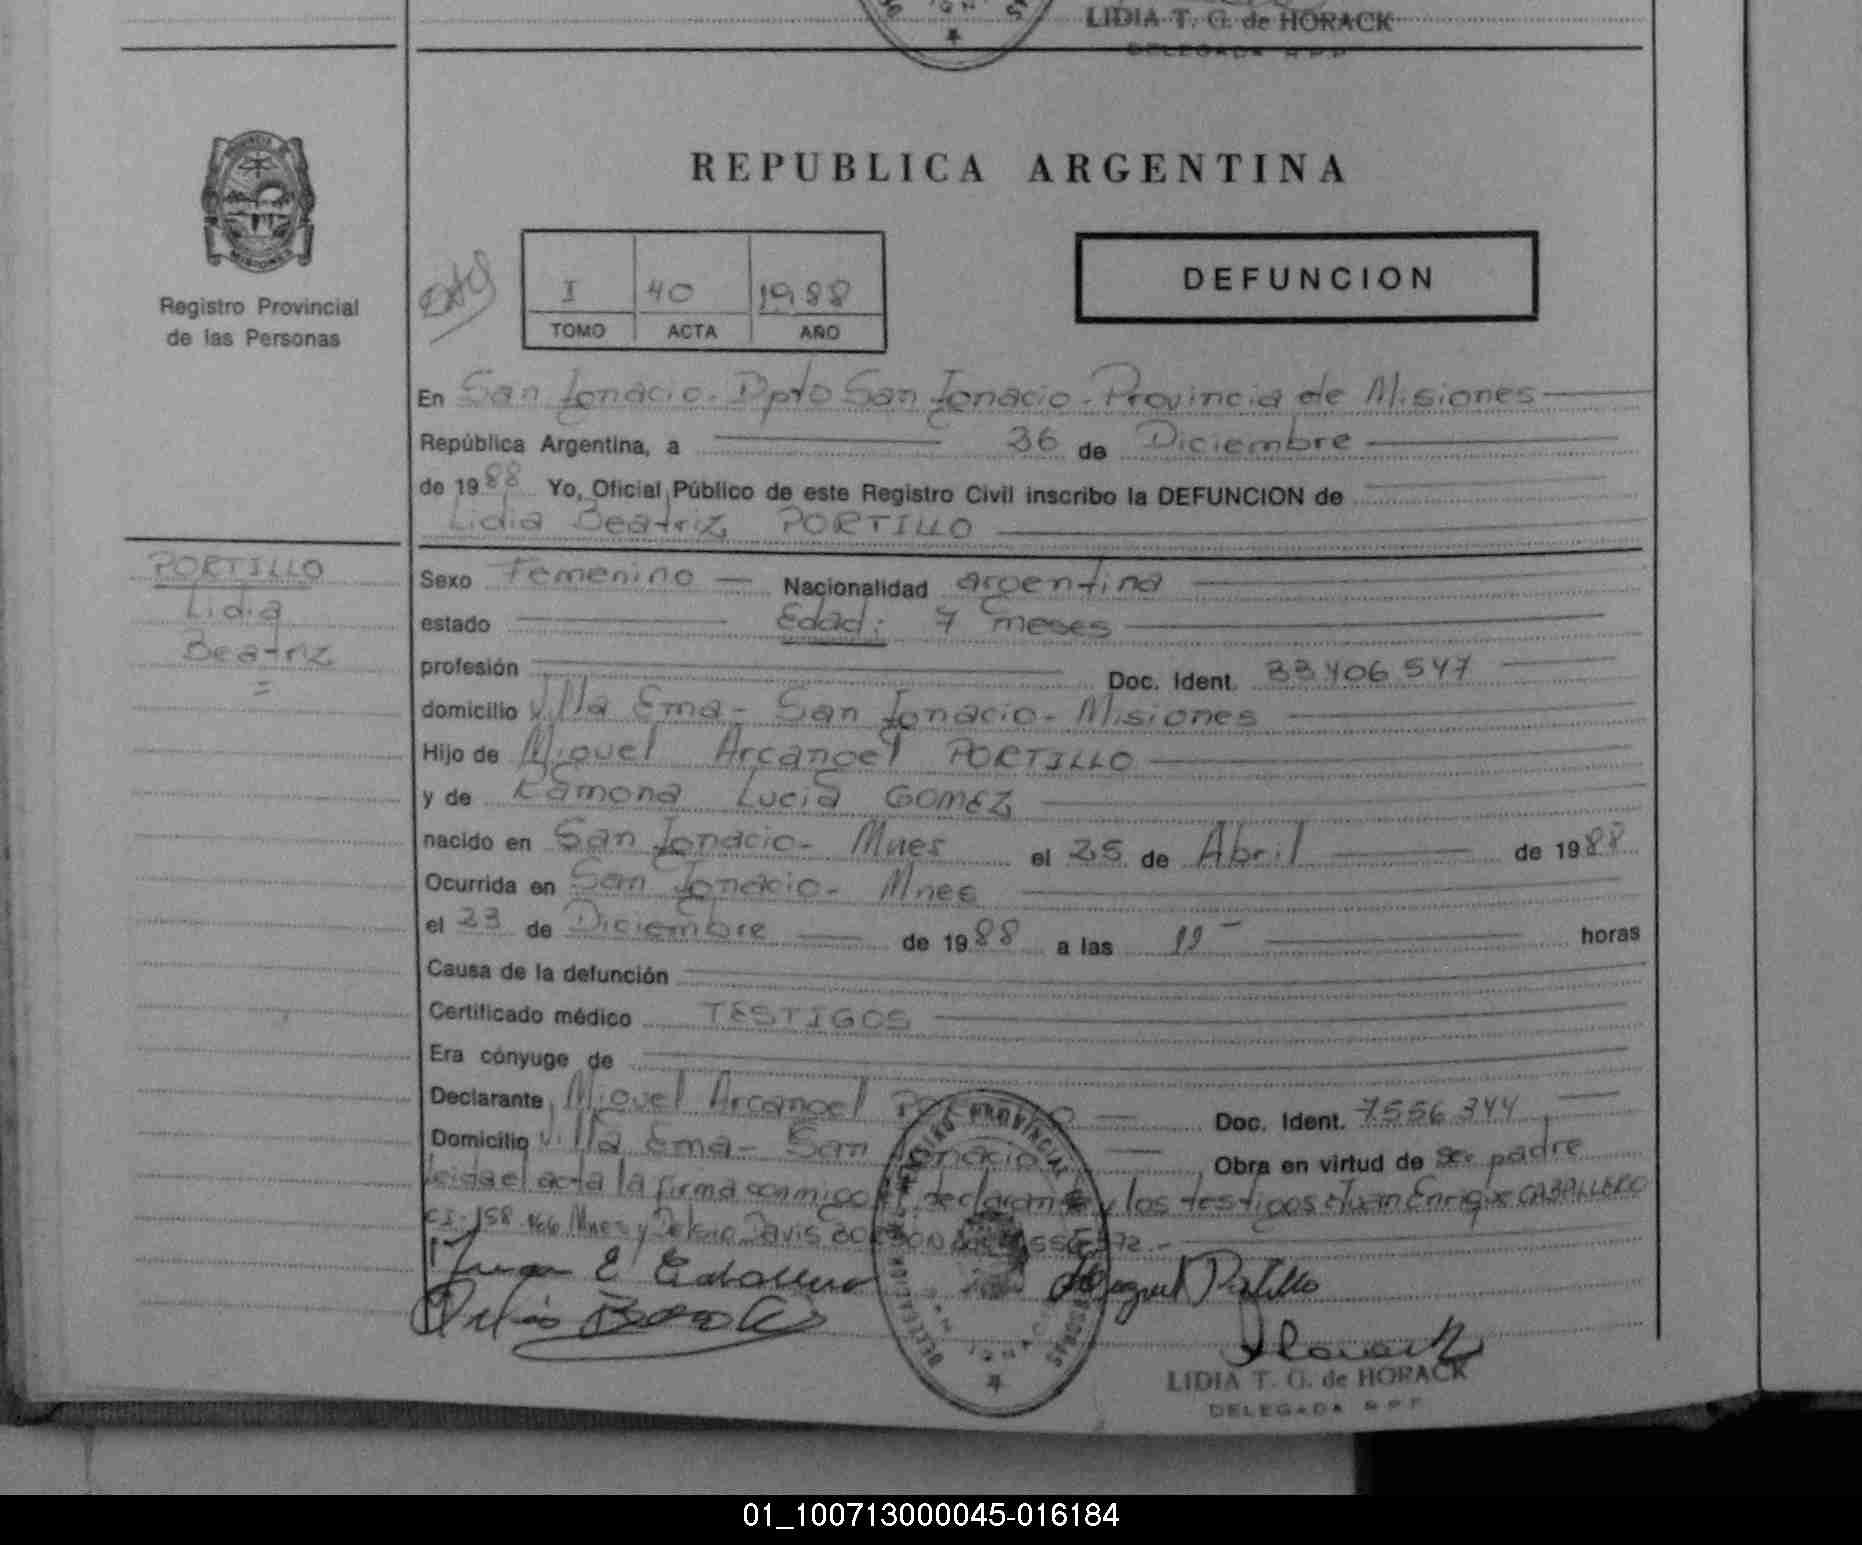 LIDIA T. G. de HORACK
DELEGADA R P P
REPUBLICA ARGENTINA
Registro Provincial
de las Personas
I 40 1988
TOMO ACTA AÑO
DEFUNCION
En San Ignacio. Dpto San Ignacio. Provincia de Misiones
República Argentina, a 26 de Diciembre
de 1988 Yo, Oficial Público de este Registro Civil inscribo la DEFUNCION de
Lidia Beatriz PORTILLO
PORTILLO
Lidia
Beatriz
=
Sexo Femenino Nacionalidad argentina
estado Edad: 7 meses
profesión Doc. Ident. 33406547
domicilio Villa Ema - San Ignacio - Misiones
Hijo de Miguel Arcangel PORTILLO
y de Ramona Lucia GOMEZ
nacido en San Ignacio - Mnes el 25 de Abril de 1988
Ocurrida en San Ignacio - Mnes
el 23 de Diciembre de 1988 a las 19 - horas
Causa de la defunción
Certificado médico TESTIGOS
Era cónyuge de
Declarante Miguel Arcangel PORTILLO Doc. Ident. 7556344
Domicilio Villa Ema - San Ignacio Obra en virtud de ser padre
leida el acta la firma conmigo el declarante y los testigos Juan Enrique CABALLERO
CI. 158.166 Mnes y
Juan E Caballero
Miguel Portillo
REGISTRO PROVINCIAL DE LAS PERSONAS
DELEGACION
LIDIA T. G. de HORACK
DELEGADA R P P
01_100713000045-016184